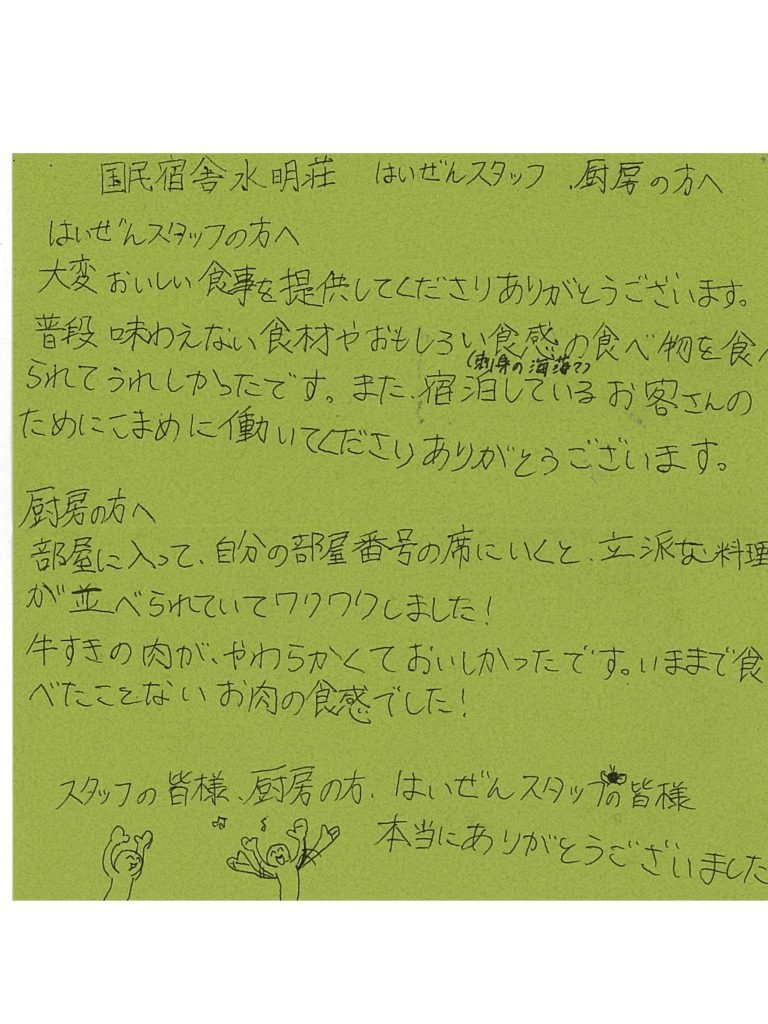 国民宿舎水明荘 はいぜんスタッフ、厨房の方へ
はいぜんスタッフの方へ
大変おいしい食事を提供してくださりありがとうございます。
普段味わえない食材やおもしろい食感の食べ物を食べ
(刺身の海藻で)
られてうれしかったです。また、宿泊しているお客さんの
ためにこまめに働いてくださりありがとうございます。
厨房の方へ
部屋に入って、自分の部屋番号の席にいくと、立派な料理
が並べられていてワクワクしました!
牛すきの肉が、やわらかくておいしかったです。いままで食
べたことないお肉の食感でした!
スタッフの皆様、厨房の方、はいぜんスタッフの皆様
本当にありがとうございました